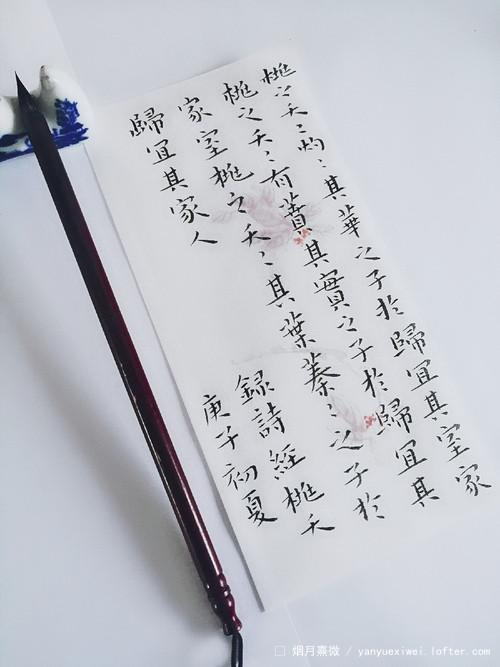 桃之夭〻灼〻其華之子於歸宜其室家
桃之夭〻有蕡其實之子於歸宜其
家室桃之夭〻其葉蓁〻之子於
歸宜其家人
録詩經桃夭
庚子初夏
烟月熹微 / yanyuexiwei.lofter.com